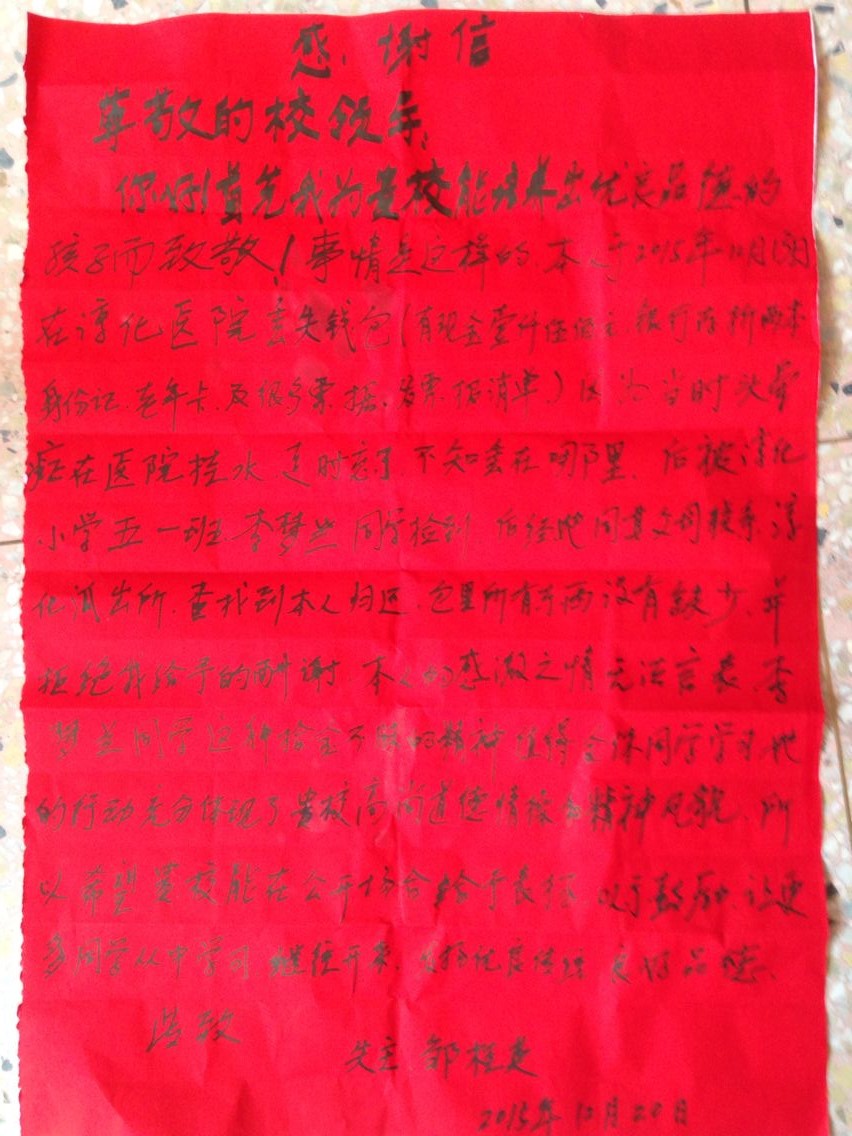 感谢信
尊敬的校领导:
你好!首先我为贵校能培养出优良品德的
孩子而致敬!事情是这样的、本人于2015年12月
在淳化医院丢失钱包(有现金壹仟伍佰元、银行存折两本
身份证、老年卡、及很多票据、发票、清单)因为当时头晕
症在医院挂水 忘了 不知丢在哪里、后被淳化
小学五一班 李梦兰同学捡到 后经她同其父母联系淳
化派出所、查找到本人归还、包里所有东西没有缺少、并
拒绝我给予的酬谢、本人的感激之情无法言表、李
梦兰同学这种拾金不昧的精神值得全体同学学习她
的行动充分体现了贵校高尚道德情操和精神风貌、所
以希望贵校能在公开场合给予表扬 以予鼓励 让更
多同学从中学习 继往开来、发扬优良传统 良好品德、
此致
失主 邹桂
2015年12月20日